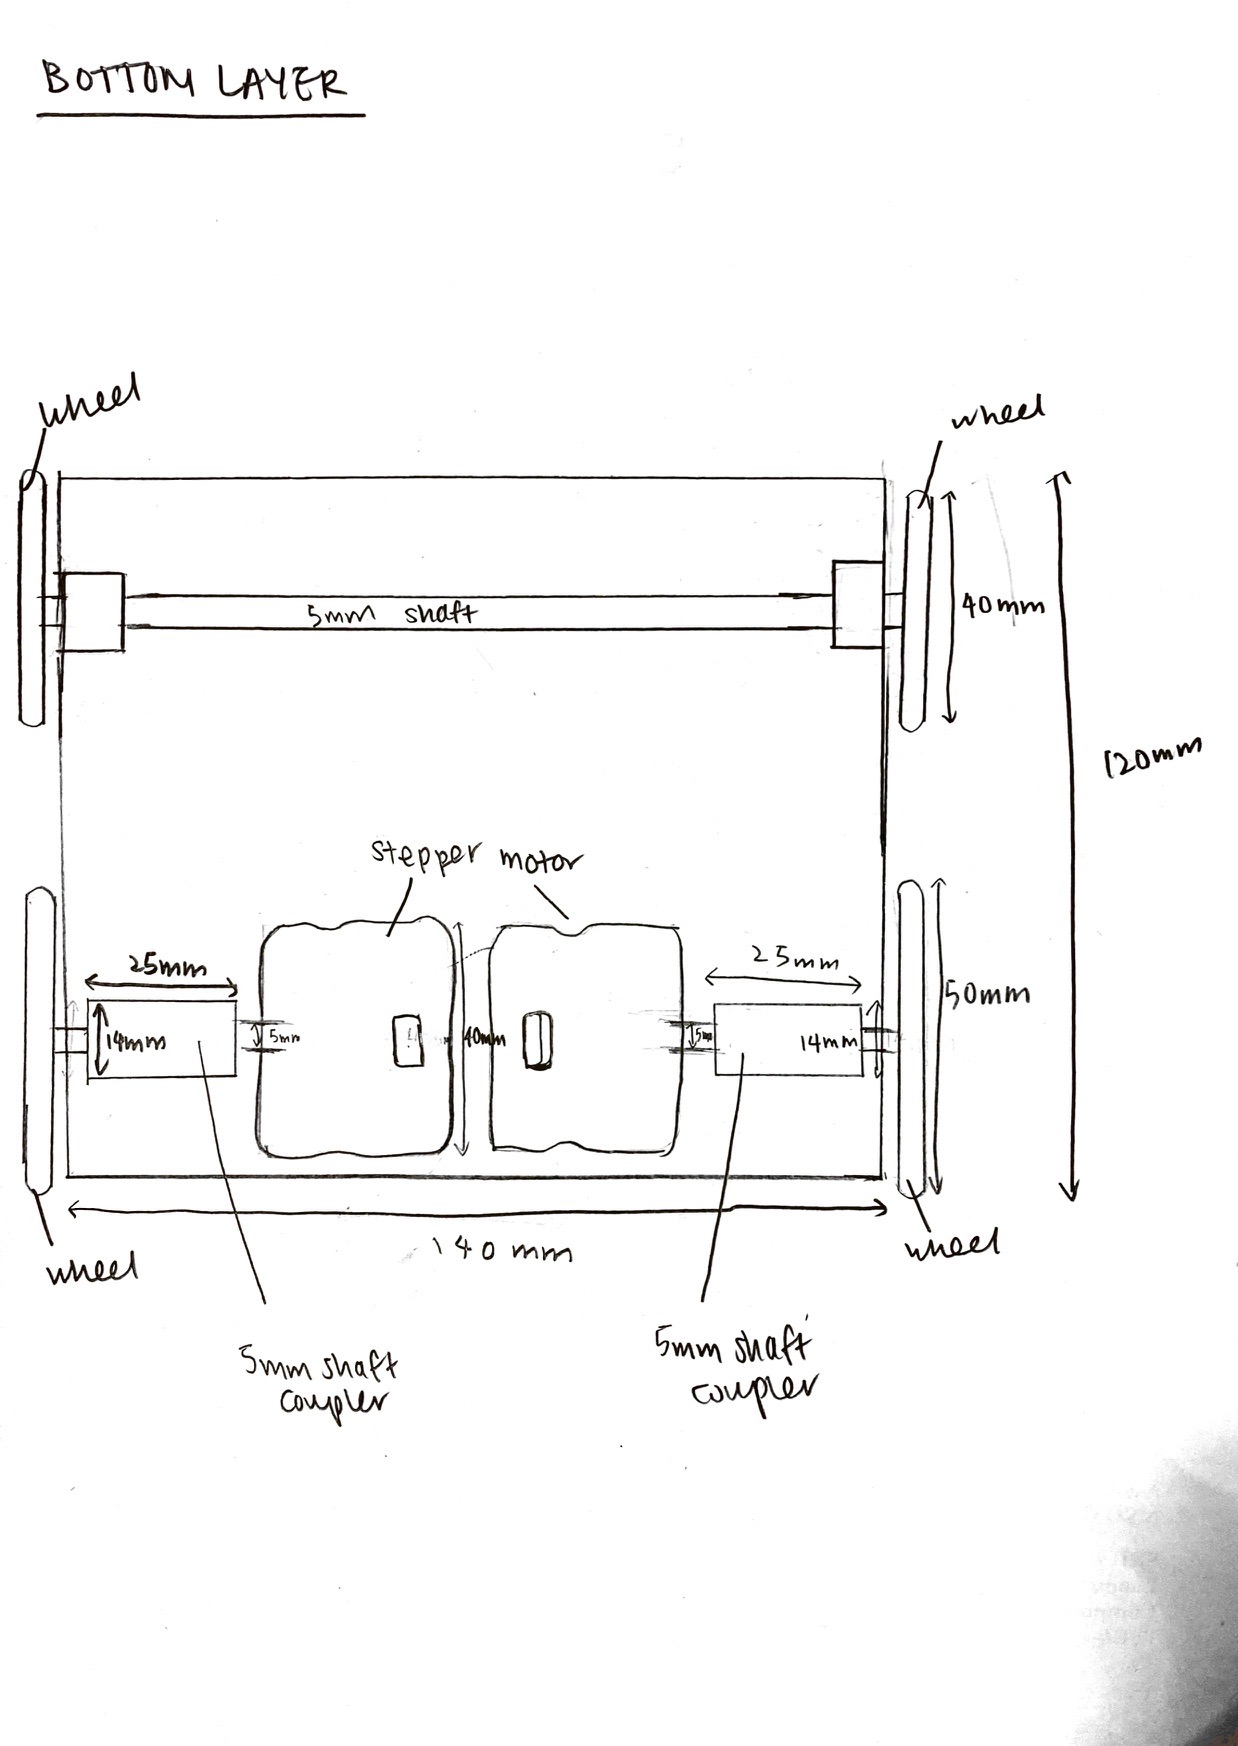 BOTTOM LAYER
wheel
wheel
5mm shaft
40mm
120mm
stepper motor
25mm
25mm
50mm
14mm
5mm
40mm
5mm
14mm
140mm
wheel
wheel
5mm shaft
coupler
5mm shaft
coupler